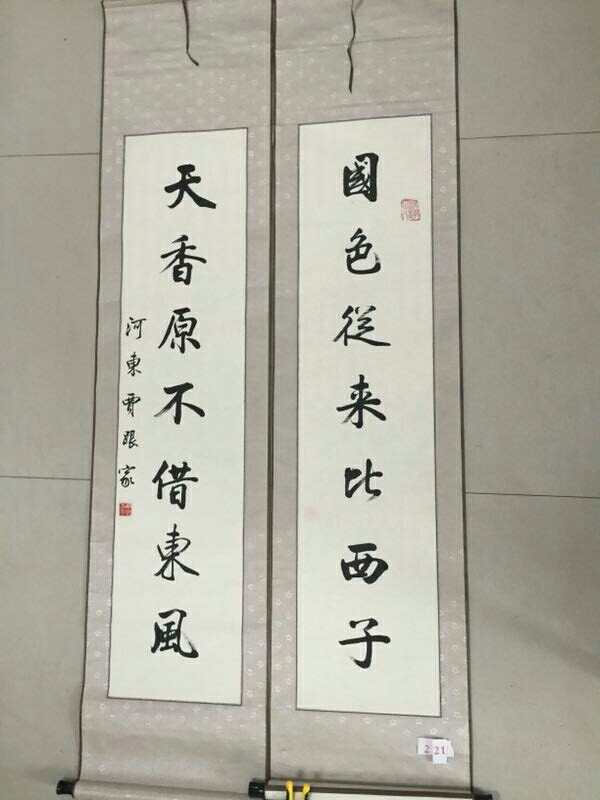 國色從来比西子
天香原不借東風
河東賈银家
221